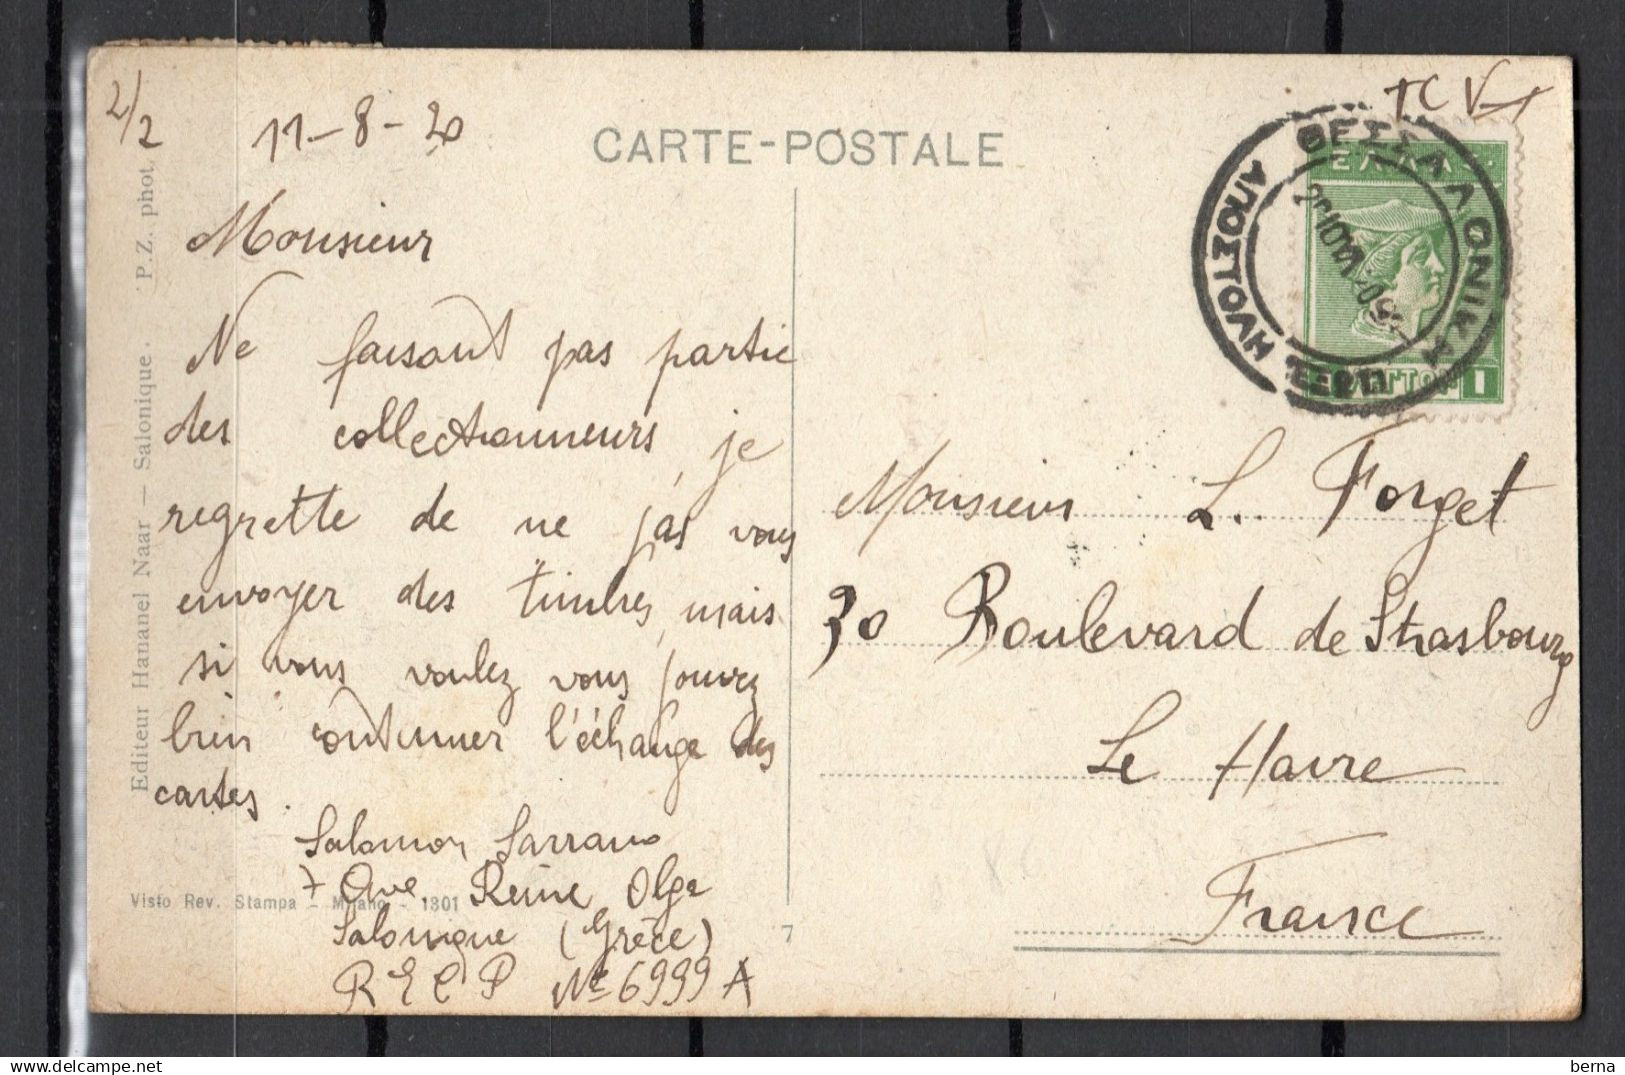 2/2
11-8-20
TCV
CARTE-POSTALE
ΘΕΣΣΑΛΟΝΙΚΗ
ΑΠΟΣΤΟΛΗ
ΕΛΛΑΣ
1
Monsieur
Ne faisant pas partie
des collectionneurs, je
regrette de ne pas vous
envoyer des timbres, mais
si vous voulez vous pouvez
bien continuer l'échange des
cartes.
Salomon Sarrano
7 Ave Reine Olga
Salonique (Grèce)
R E C P No 6999 A
Monsieur L. Forget
30 Boulevard de Strasbourg
Le Havre
France
Editeur Hananel Naar — Salonique. P.Z. phot.
Visto Rev. Stampa - Milano - 1301
7
berna